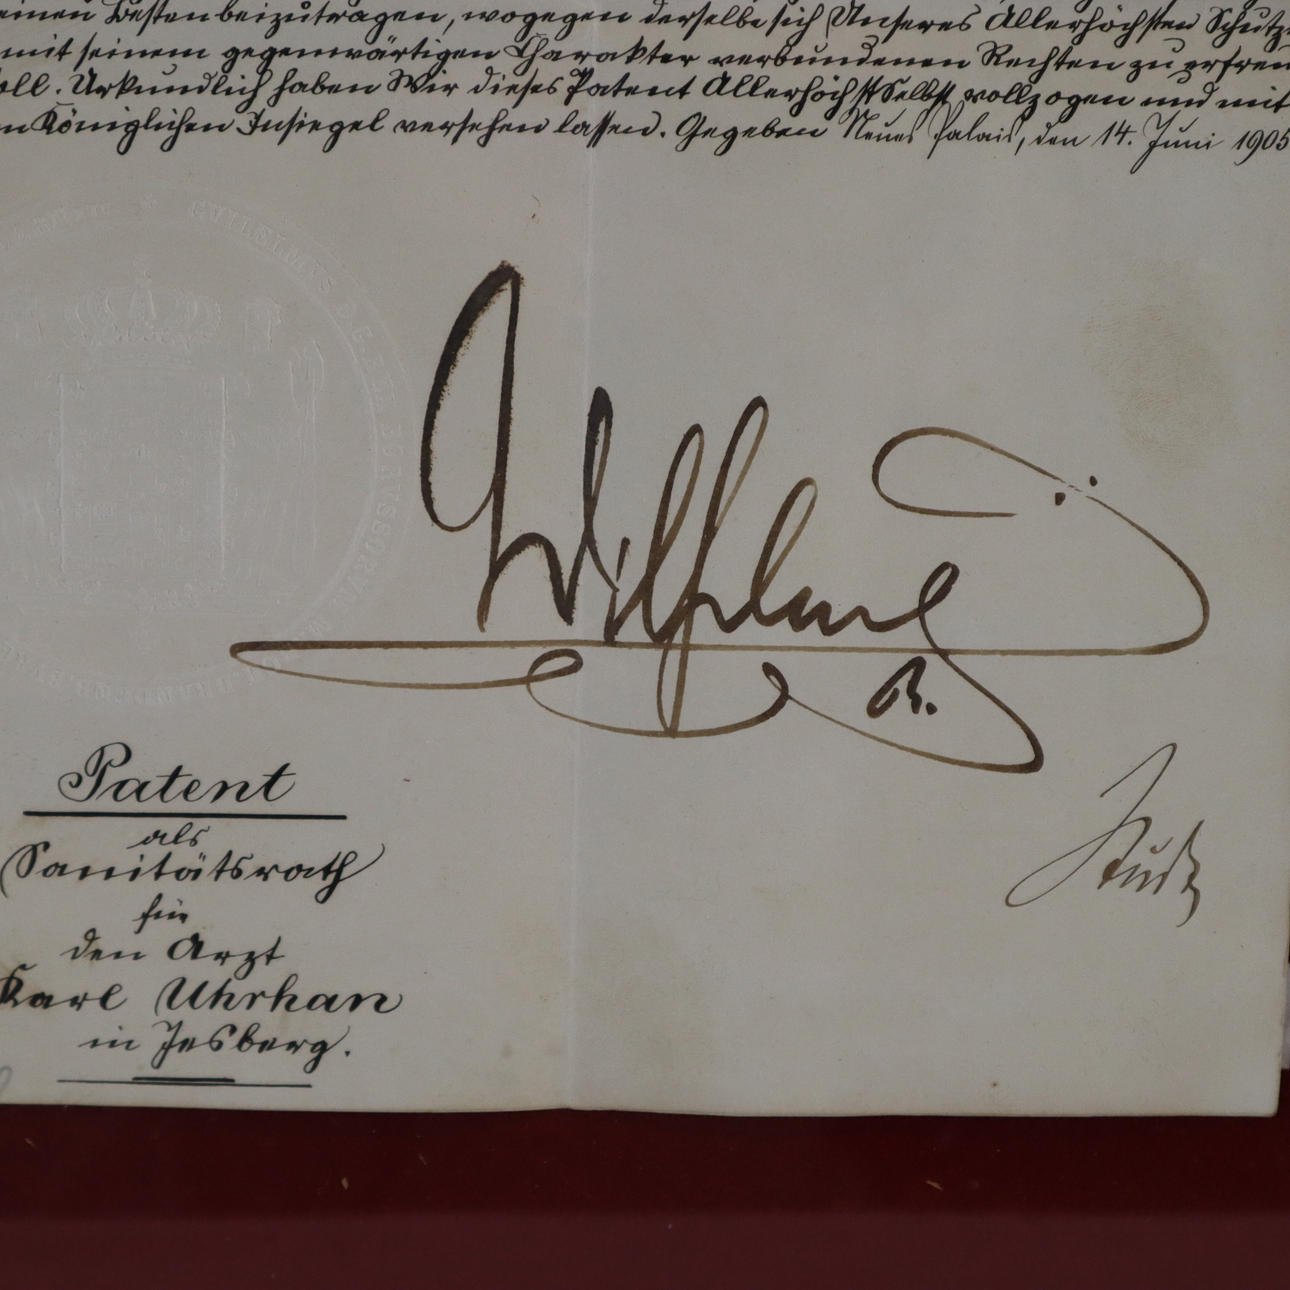 einen Besten beizutragen, wogegen derselbe sich Unseres Allerhöchsten Schutz
mit seinem gegenwärtigen Charakter verbundenen Rechten zu erfreu
oll. Urkundlich haben Wir dieses Patent AllerhöchstSelbst vollzogen und mit
n Königlichen Insiegel versehen lassen. Gegeben Neues Palais, den 14. Juni 1905
GVILELMVS D.G. REX BORVSSORVM
Wilhelm
R.
Studt
Patent
als
Sanitätsrath
für
den Arzt
Karl Uhrhan
in Jesberg.